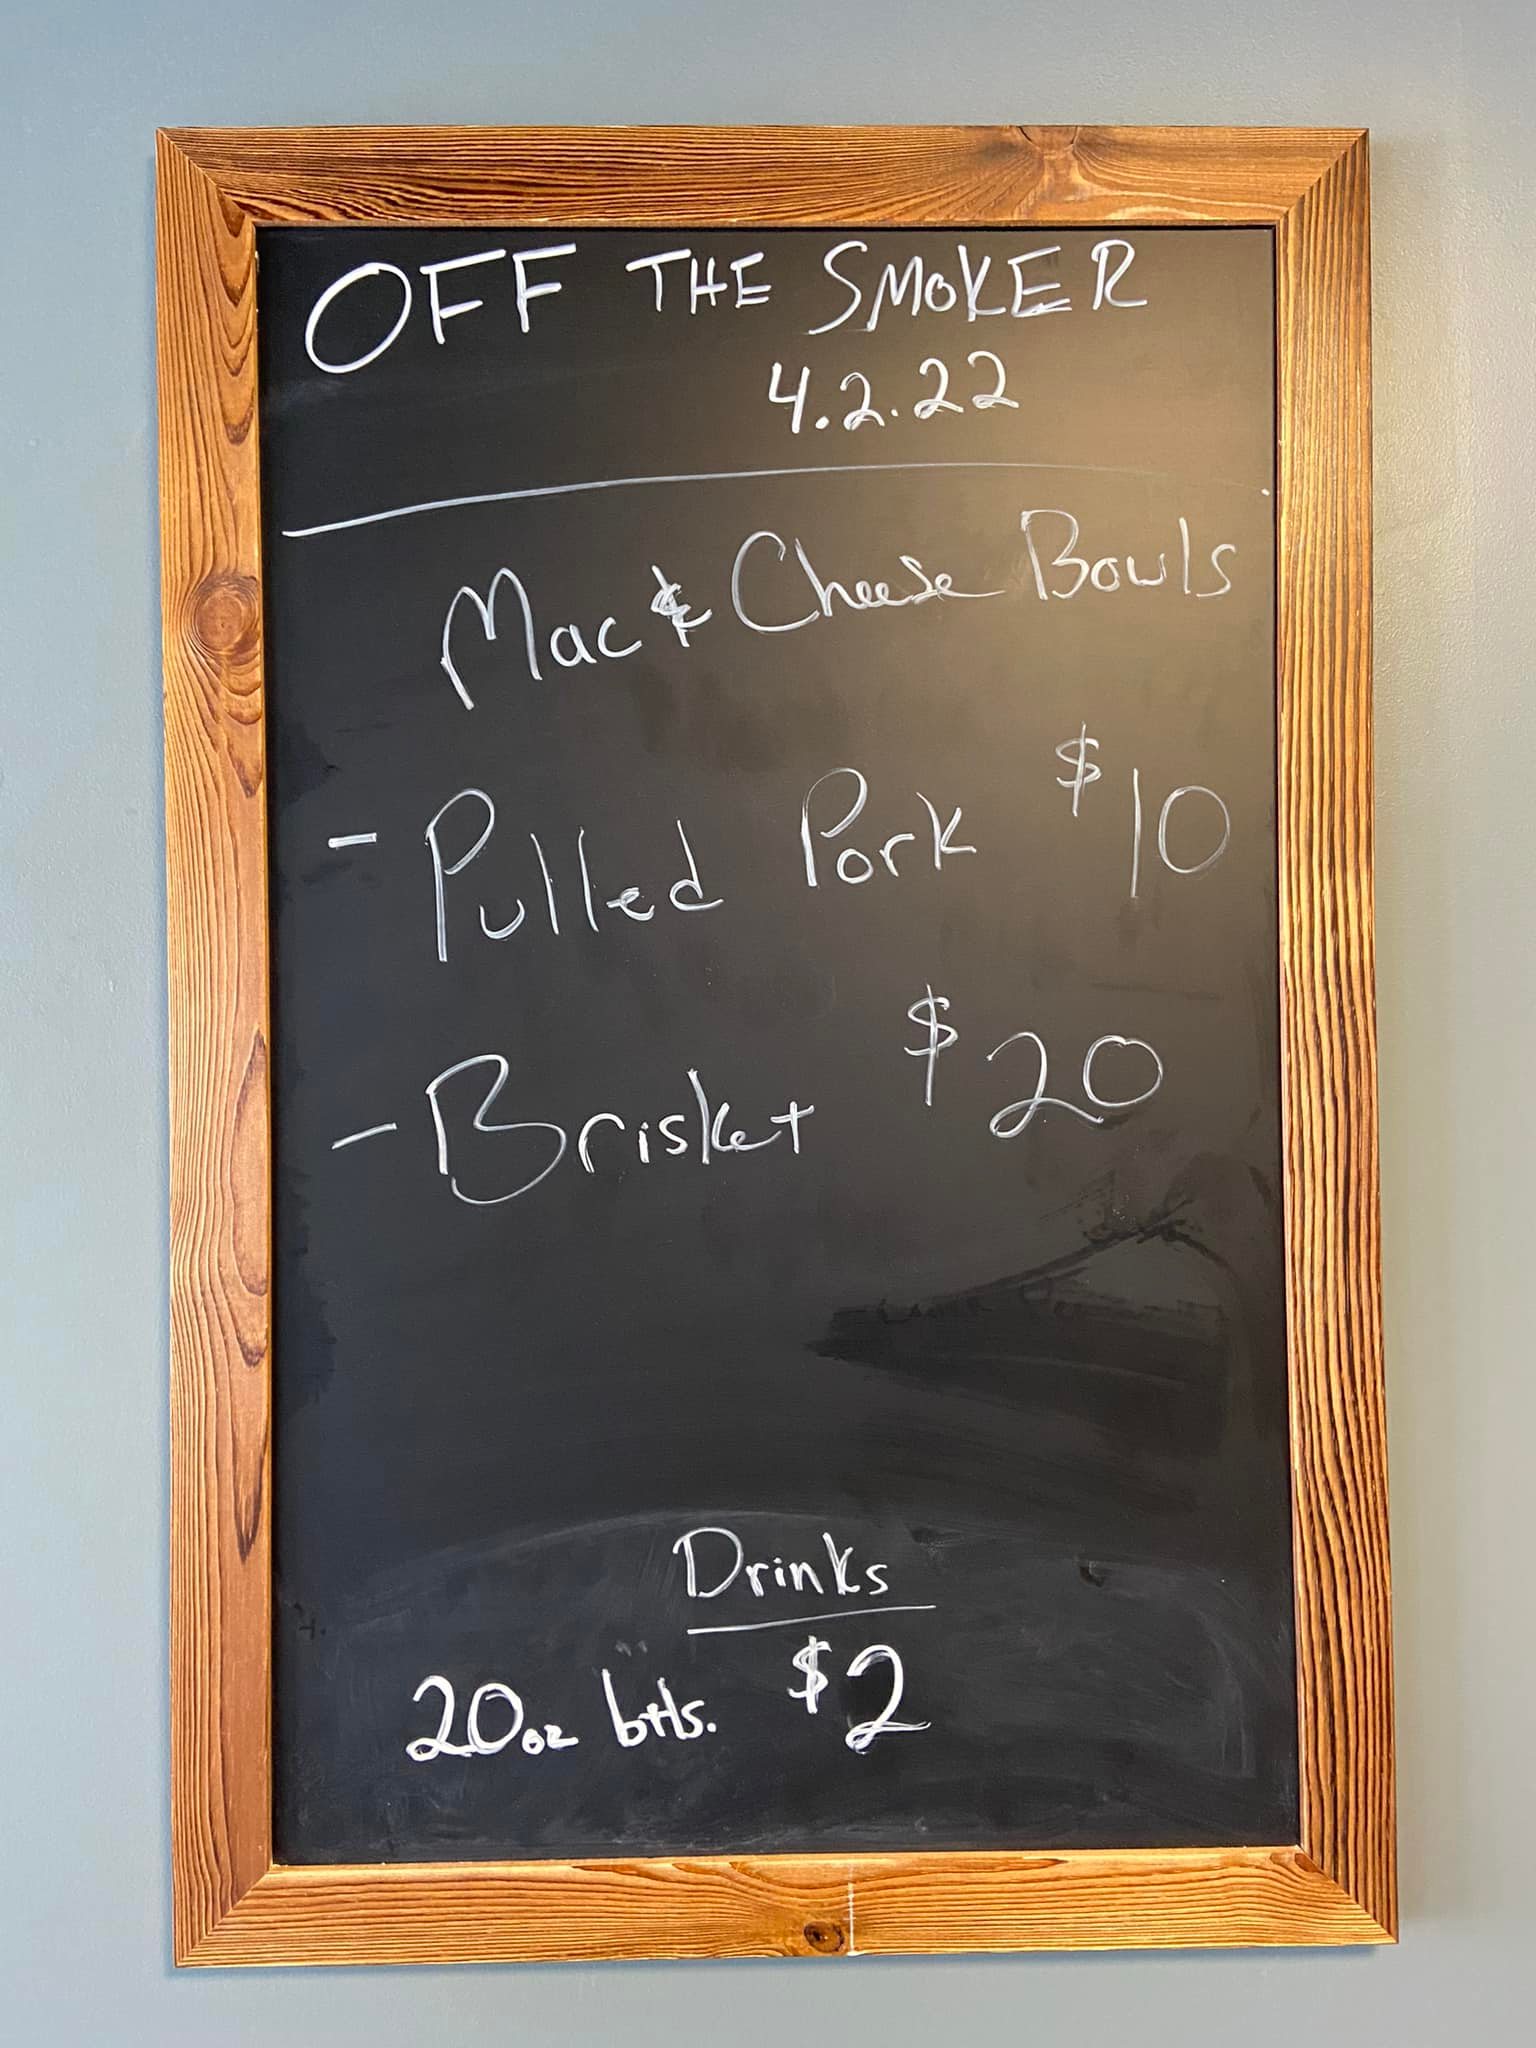 OFF THE SMOKER
4.2.22
Mac & Cheese Bowls
- Pulled Pork $10
- Brisket $20
Drinks
20oz btls. $2